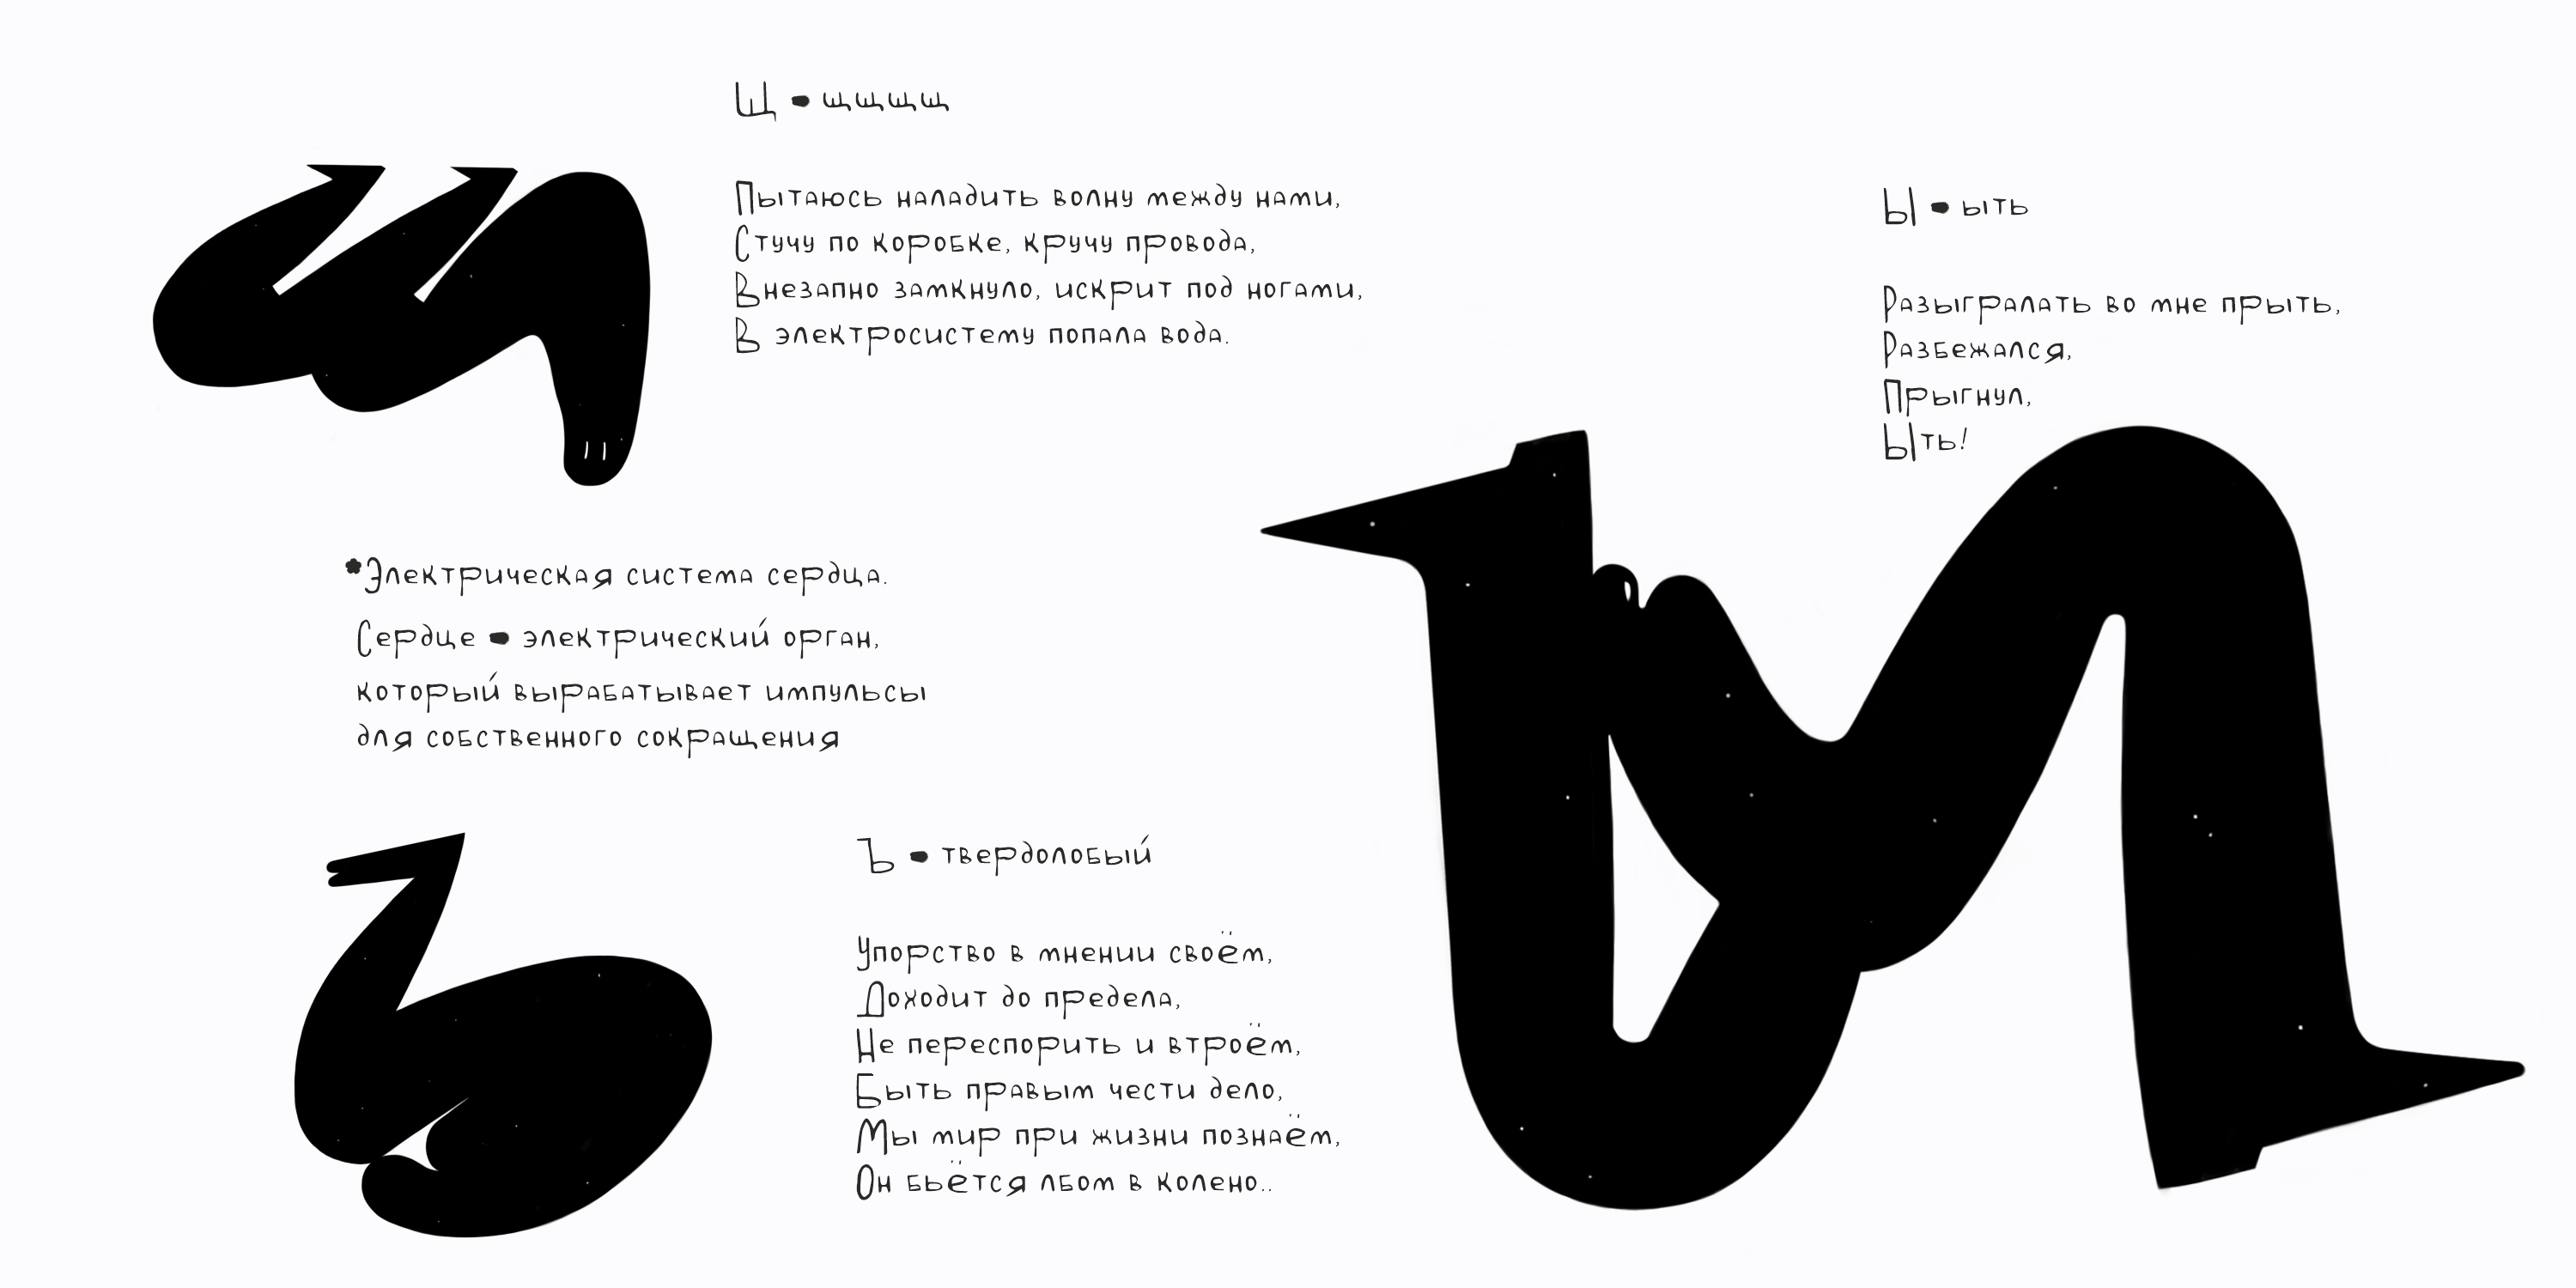 Щ - щщщщ
Пытаюсь наладить волну между нами,
Стучу по коробке, кручу провода,
Внезапно замкнуло, искрит под ногами,
В электросистему попала вода.
*Электрическая система сердца.
Сердце - электрический орган,
который вырабатывает импульсы
для собственного сокращения
Ъ - твердолобый
Упорство в мнении своём,
Доходит до предела,
Не переспорить и втроём,
Быть правым чести дело,
Мы мир при жизни познаём,
Он бьётся лбом в колено..
Ы - ыть
Разыгралать во мне прыть,
Разбежался,
Прыгнул,
Ыть!